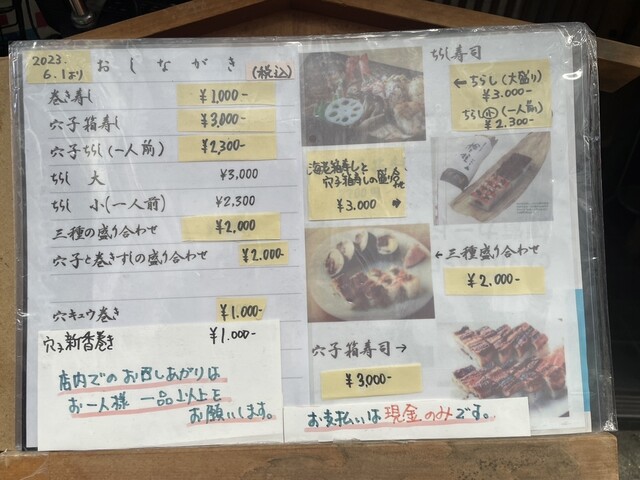 2023.
6.1より
おしながき
(税込)
巻き寿し ¥1,000-
穴子箱寿し ¥3,000-
穴子ちらし(一人前) ¥2,300-
ちらし 大 ¥3,000
ちらし 小(一人前) ¥2,300
三種の盛り合わせ ¥2,000
穴子と巻きすしの盛り合わせ ¥2,000-
穴キュウ巻き ¥1.000-
穴子新香巻き ¥1.000-
店内でのお召しあがりは
お一人様 一品以上を
お願いします。
ちらし寿司
←ちらし(大盛り)
¥3.000-
ちらし小(一人前)
¥2.300-
海老箱寿しと
穴子箱寿しの盛合せ
¥3.000
←三種盛り合わせ
¥2.000-
穴子箱寿司→
¥3,000-
お支払いは現金のみです。